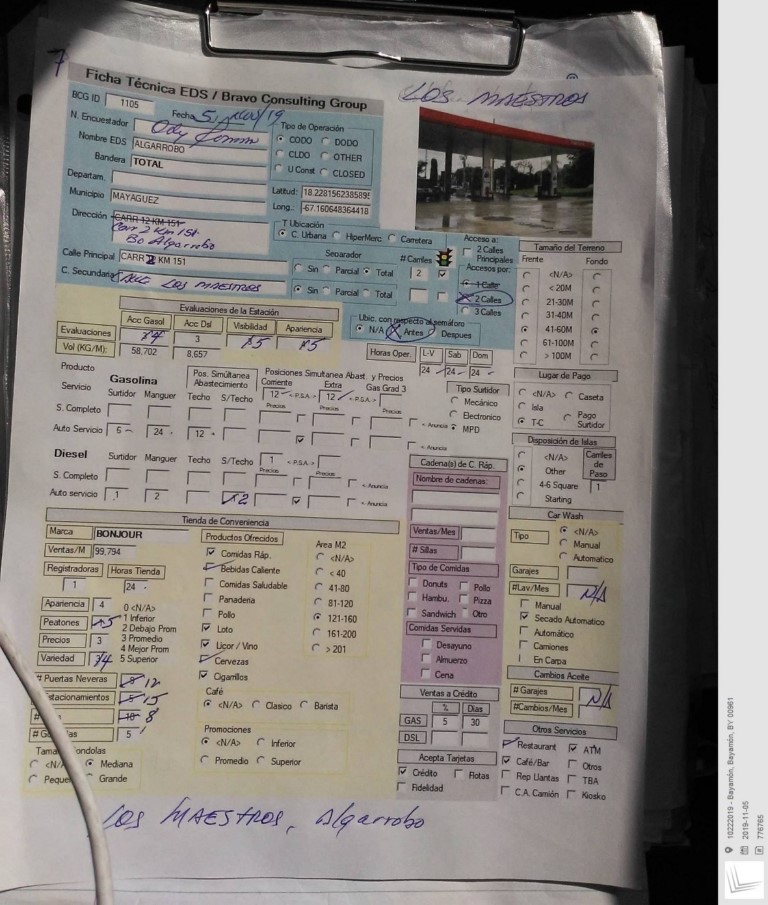 7
LOS MAESTROS
Ficha Técnica EDS / Bravo Consulting Group
BCG ID 1105
Fecha 5
N. Encuestador
Nombre EDS ALGARROBO
Bandera TOTAL
Departam.
Municipio MAYAGUEZ
Dirección CARR 12 KM 151
Carr 2 Km 151
Bo Algarrobo
Calle Principal CARR 2 KM 151
C. Secundaria CALLE LOS MAESTROS
Tipo de Operación
CODO DODO
CLDO OTHER
U Const CLOSED
Latitud: 18.2281562385895
Long.: -67.160648364418
T Ubicación
C. Urbana HiperMerc Carretera
Separador # Carriles
Sin Parcial Total 2
Sin Parcial Total
Acceso a:
2 Calles Principales
Accesos por:
1 Calle
2 Calles
3 Calles
Ubic. con respecto al semáforo
N/A Antes Despues
Tamaño del Terreno
Frente Fondo
<N/A>
< 20M
21-30M
31-40M
41-60M
61-100M
> 100M
Evaluaciones de la Estación
Acc Gasol Acc Dsl Visibilidad Apariencia
Evaluaciones 4 3 5 5
Vol (KG/M): 58,702 8,657
Horas Oper. L-V Sab Dom
24 24 24
Producto
Servicio Gasolina
Surtidor Manguer Techo S/Techo
Pos. Simúltanea Abastecimiento
Posiciones Simultanea Abast. y Precios
Corriente Extra Gas Grad 3
12 <-P.S.A.-> 12 <-P.S.A.->
Precios Precios Precios
S. Completo <- Anuncia
Auto Servicio 6 24 12 <- Anuncia
Tipo Surtidor
Mecánico
Electronico
MPD
Lugar de Pago
<N/A> Caseta
Isla Pago Surtidor
T-C
Diesel Surtidor Manguer Techo S/Techo 1 <-P.S.A.->
Precios Precios
S. Completo <- Anuncia
Auto servicio 1 2 2 <- Anuncia
Disposición de Islas
<N/A> Carriles de Paso
Other
4-6 Square 1
Starting
Cadena(s) de C. Ráp.
Nombre de cadenas:
Ventas/Mes
# Sillas
Tipo de Comidas
Donuts Pollo
Hambu. Pizza
Sandwich Otro
Comidas Servidas
Desayuno
Almuerzo
Cena
Car Wash
Tipo <N/A>
Manual
Automatico
Garajes
#Lav/Mes N/A
Manual
Secado Automatico
Automático
Camiones
En Carpa
Cambios Aceite
# Garajes N/A
#Cambios/Mes
Tienda de Conveniencia
Marca BONJOUR
Ventas/M 99,794
Registradoras Horas Tienda
1 24
Apariencia 4 0 <N/A>
Peatones 5 1 Inferior
2 Debajo Prom
Precios 3 3 Promedio
4 Mejor Prom
Variedad 4 5 Superior
# Puertas Neveras 12
Estacionamientos 15
8
5
Tama Gondolas
<N/ Mediana
Peque Grande
Productos Ofrecidos
Comidas Ráp.
Bebidas Caliente
Comidas Saludable
Panaderia
Pollo
Loto
Liqor / Vino
Cervezas
Cigarrillos
Area M2
<N/A>
< 40
41-80
81-120
121-160
161-200
> 201
Café
<N/A> Clasico Barista
Promociones
<N/A> Inferior
Promedio Superior
Ventas a Crédito
% Dias
GAS 5 30
DSL
Acepta Tarjetas
Crédito Flotas
Fidelidad
Otros Servicios
Restaurant ATM
Café/Bar Otros
Rep Llantas TBA
C.A. Camión Kiosko
LOS MAESTROS, Algarrobo
10222019 - Bayamón, Bayamón, BY 00961
2019-11-05
776765